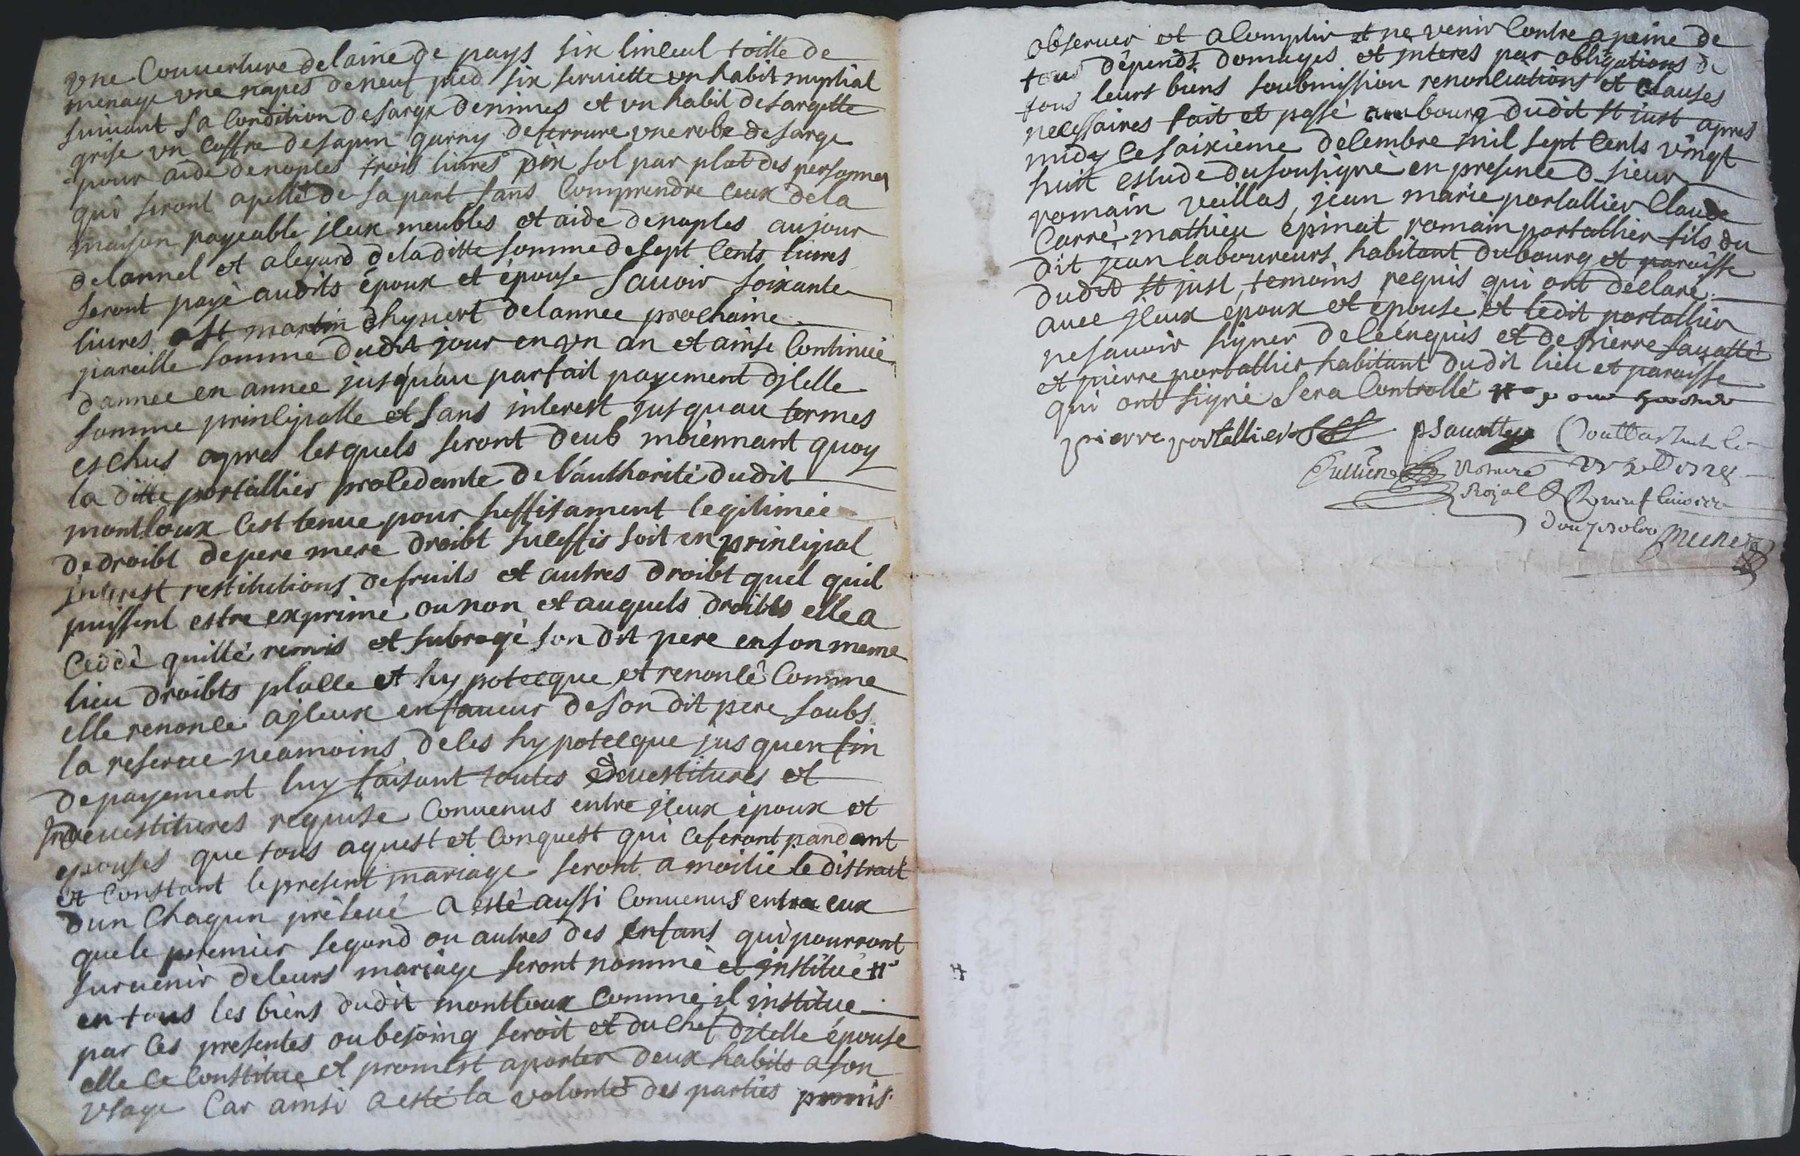 une Couverture de laine de pays six linceul toille de
menage une napes de neuf pied six serviette un habit nuptial
suivant sa Condition de sarge denimes et un habit de sargette
grise un coffre de sapin garny de ferrure une robe de sarge
pour aide de noples trois livres dix sol par plat des personnes
qui seront apellé de sa part sans Comprendre ceux de la
maison payeable jleux meubles et aide de noples au jour
delannel et a legard de la ditte somme de sept Cents livres
seront payé audits époux et épouse Sauoir soixante
livres a St martin dhyuert de lannee prochaine
pareille somme dudit jour en un an et ainse Continué
dannee en annee jusquau parfait payement djcelle
somme principalle et sans interest jusquau termes
eschus apres lesquels seront deub moiennant quoy
la ditte portallier procedante de l'authorité dudit
montloux cest tenue pour suffisament legitimée
de droibt de pere mere droibt sucessis soit en principal
interest restitutions de fruits et autres droibt quel quil
puissent estre exprimé ou non et auquels droibts elle a
Ceddé quitté remis et subrogé son dit pere en son meme
lieu droibts place et hypotecque et renoncé Comme
elle renonce ajceux en faueur de son dit pere soubs
la reserue neamoins de ces hypotecque jusquen fin
de payement luy faisant toutes deuestitures et
Jnvestitures requise Convenus entre jceux époux et
epouses que tous aquest et Conquest qui ce feront pandant
et Constant le present mariage seront a moitié le distrait
dun Chaqun préleué a esté aussi Convenus entre eux
que le premier segond ou autres des enfans qui pourront
survenir de leurs mariage seront nommé et institué #
en tous les biens dudit montloux Comme il institue
par Ces presentes ou besoing seroit et du Chef djcelle épouse
elle ce Constitue et promest aporter deux habits a son
usage Car ainsi a esté la volonté des parties promis
observer et acomplir et ne venir Contre a peine de
tous dépends domages et interes par obligations de
tous leurs biens soubmission renonciations et Clauses
necessaires fait et passé au bourg dudit St just apres
midy ce saixième decembre mil sept Cents vingt
huit estude du sousigné en presence d sieur
romain veillas, jean marie portallier Claude
Carré mathieu épinat romain portallier fils du
dit jean laboureurs habitant du bourg et paroisse
dudit St just temoins requis qui ont declare
avec jleux époux et epouse et ledit portallier
ne savoir signer de ce enquis et de pierre sauatte
et pierre portallier habitant dudit lieu et paroisse
qui ont signé sera Controllé #
pierre portallier psauatte
notaire
Royal
#